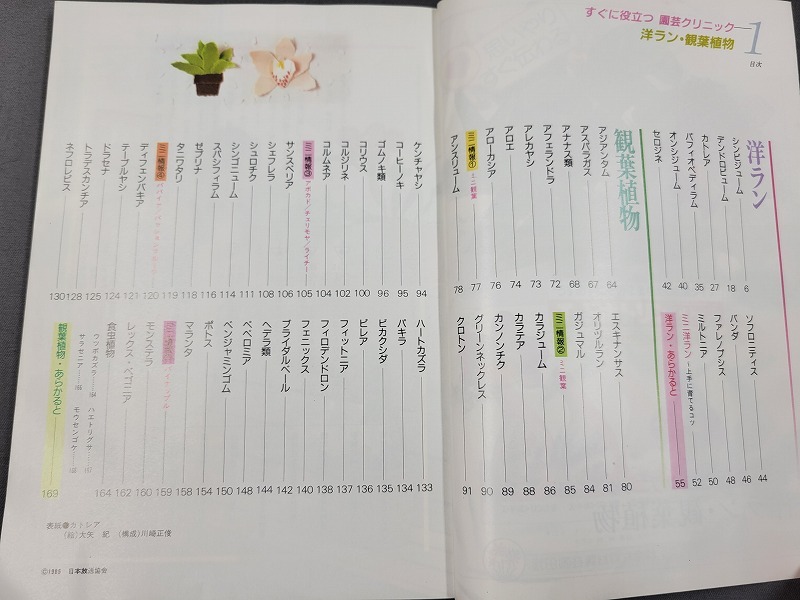 すぐに役立つ 園芸クリニック—1
洋ラン・観葉植物
目次
洋ラン
シンビジューム 6
デンドロビューム 18
カトレア 27
パフィオペディラム 35
オンシジューム 40
セロジネ 42
ソフロニティス 44
バンダ 46
ファレノプシス 48
ミルトニア 50
ミニ洋ラン—上手に育てるコツ 52
洋ラン・あらかると 55
観葉植物
アジアンタム 64
アスパラガス 67
アナナス類 68
アフェランドラ 72
アレカヤシ 73
アロエ 74
アローカシア 76
ミニ情報① ミニ観葉 77
アンスリューム 78
エスキナンサス 80
オリヅルラン 81
ガジュマル 84
ミニ情報② ミニ観葉 85
カラジューム 86
カラテア 88
カンノンチク 89
グリーンネックレス 90
クロトン 91
ケンチャヤシ 94
コーヒーノキ 95
ゴムノキ類 96
コリウス 100
コルジリネ 102
コルムネア 104
ミニ情報③ アボカド/チェリモヤ/ライチー 105
サンスベリア 106
シェフレラ 108
シュロチク 110
シンゴニューム 111
スパシフィラム 114
ゼブリナ 116
タニワタリ 118
ミニ情報④ 119
ディフェンバキア 120
テーブルヤシ 121
ドラセナ 124
トラデスカンチア 125
ネフロレピス 128
130
ハートカズラ 133
パキラ 134
ビカクシダ 135
ピレア 136
フィットニア 137
フィロデンドロン 138
フェニックス 140
ブライダルベール 142
ヘデラ類 144
ペペロミア 148
ベンジャミンゴム 150
ポトス 154
マランタ 158
ミニ情報 159
モンステラ 160
レックス・ベゴニア 162
食虫植物 164
ウツボカズラ……164
ハエトリグサ
サラセニア
モウセンゴケ
観葉植物・あらかると 169
表紙●カトレア
〈絵〉大矢 紀 〈構成〉川崎正俊
日本放送協会